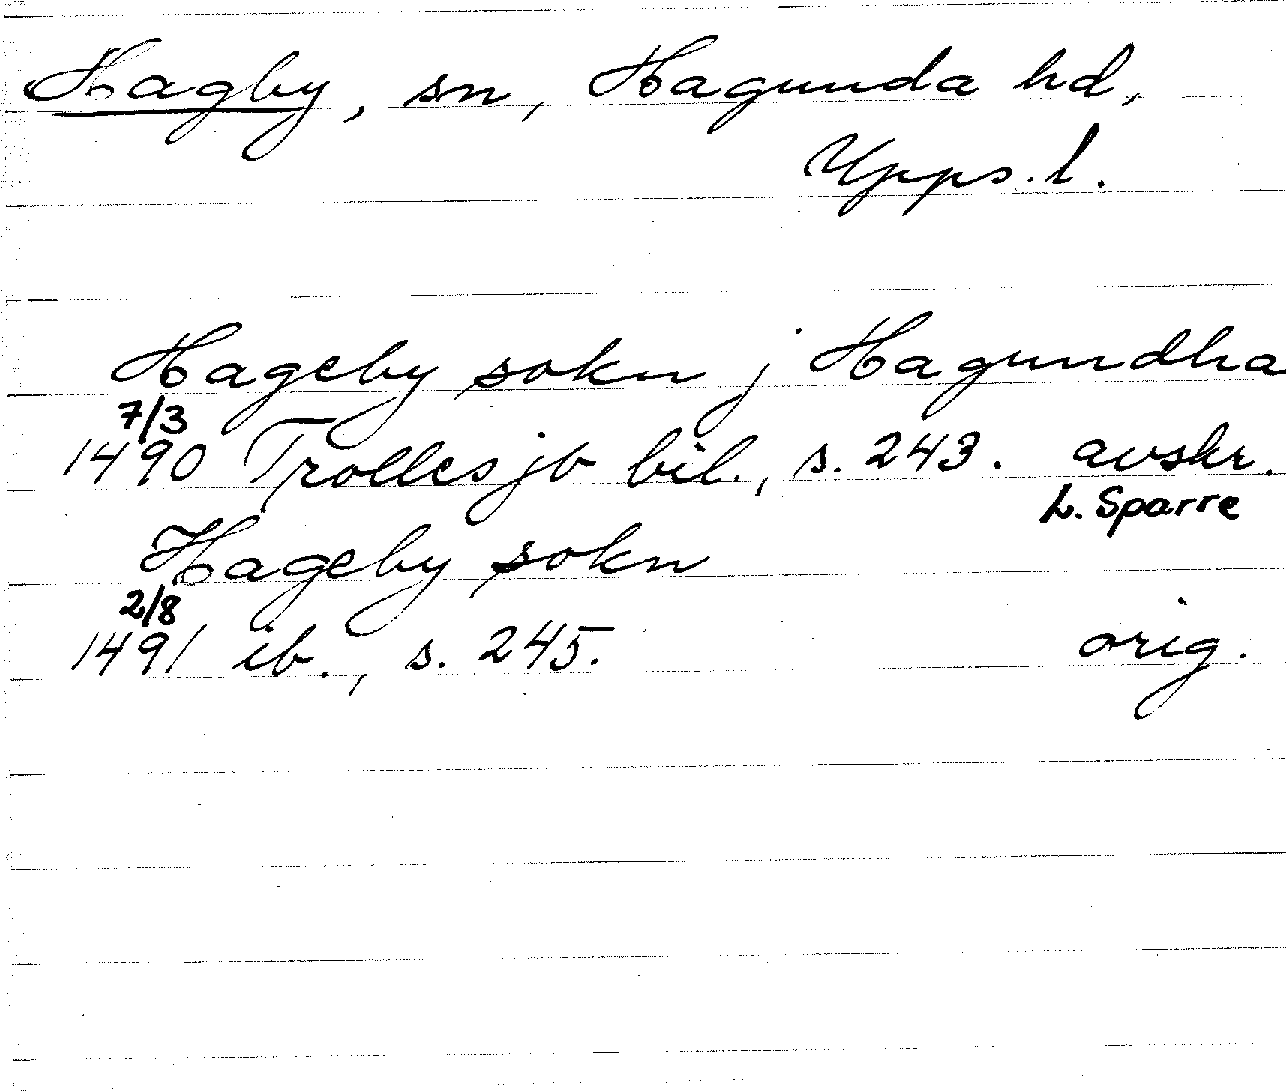 Hagby, sn, Hagunda hd,
Upps. l.
Hageby sokn j Hagundha
7/3
1490 Trolles jb bil., s. 243. avskr.
L. Sparre
Hageby sokn
2/8
1491 ib., s. 245. orig.